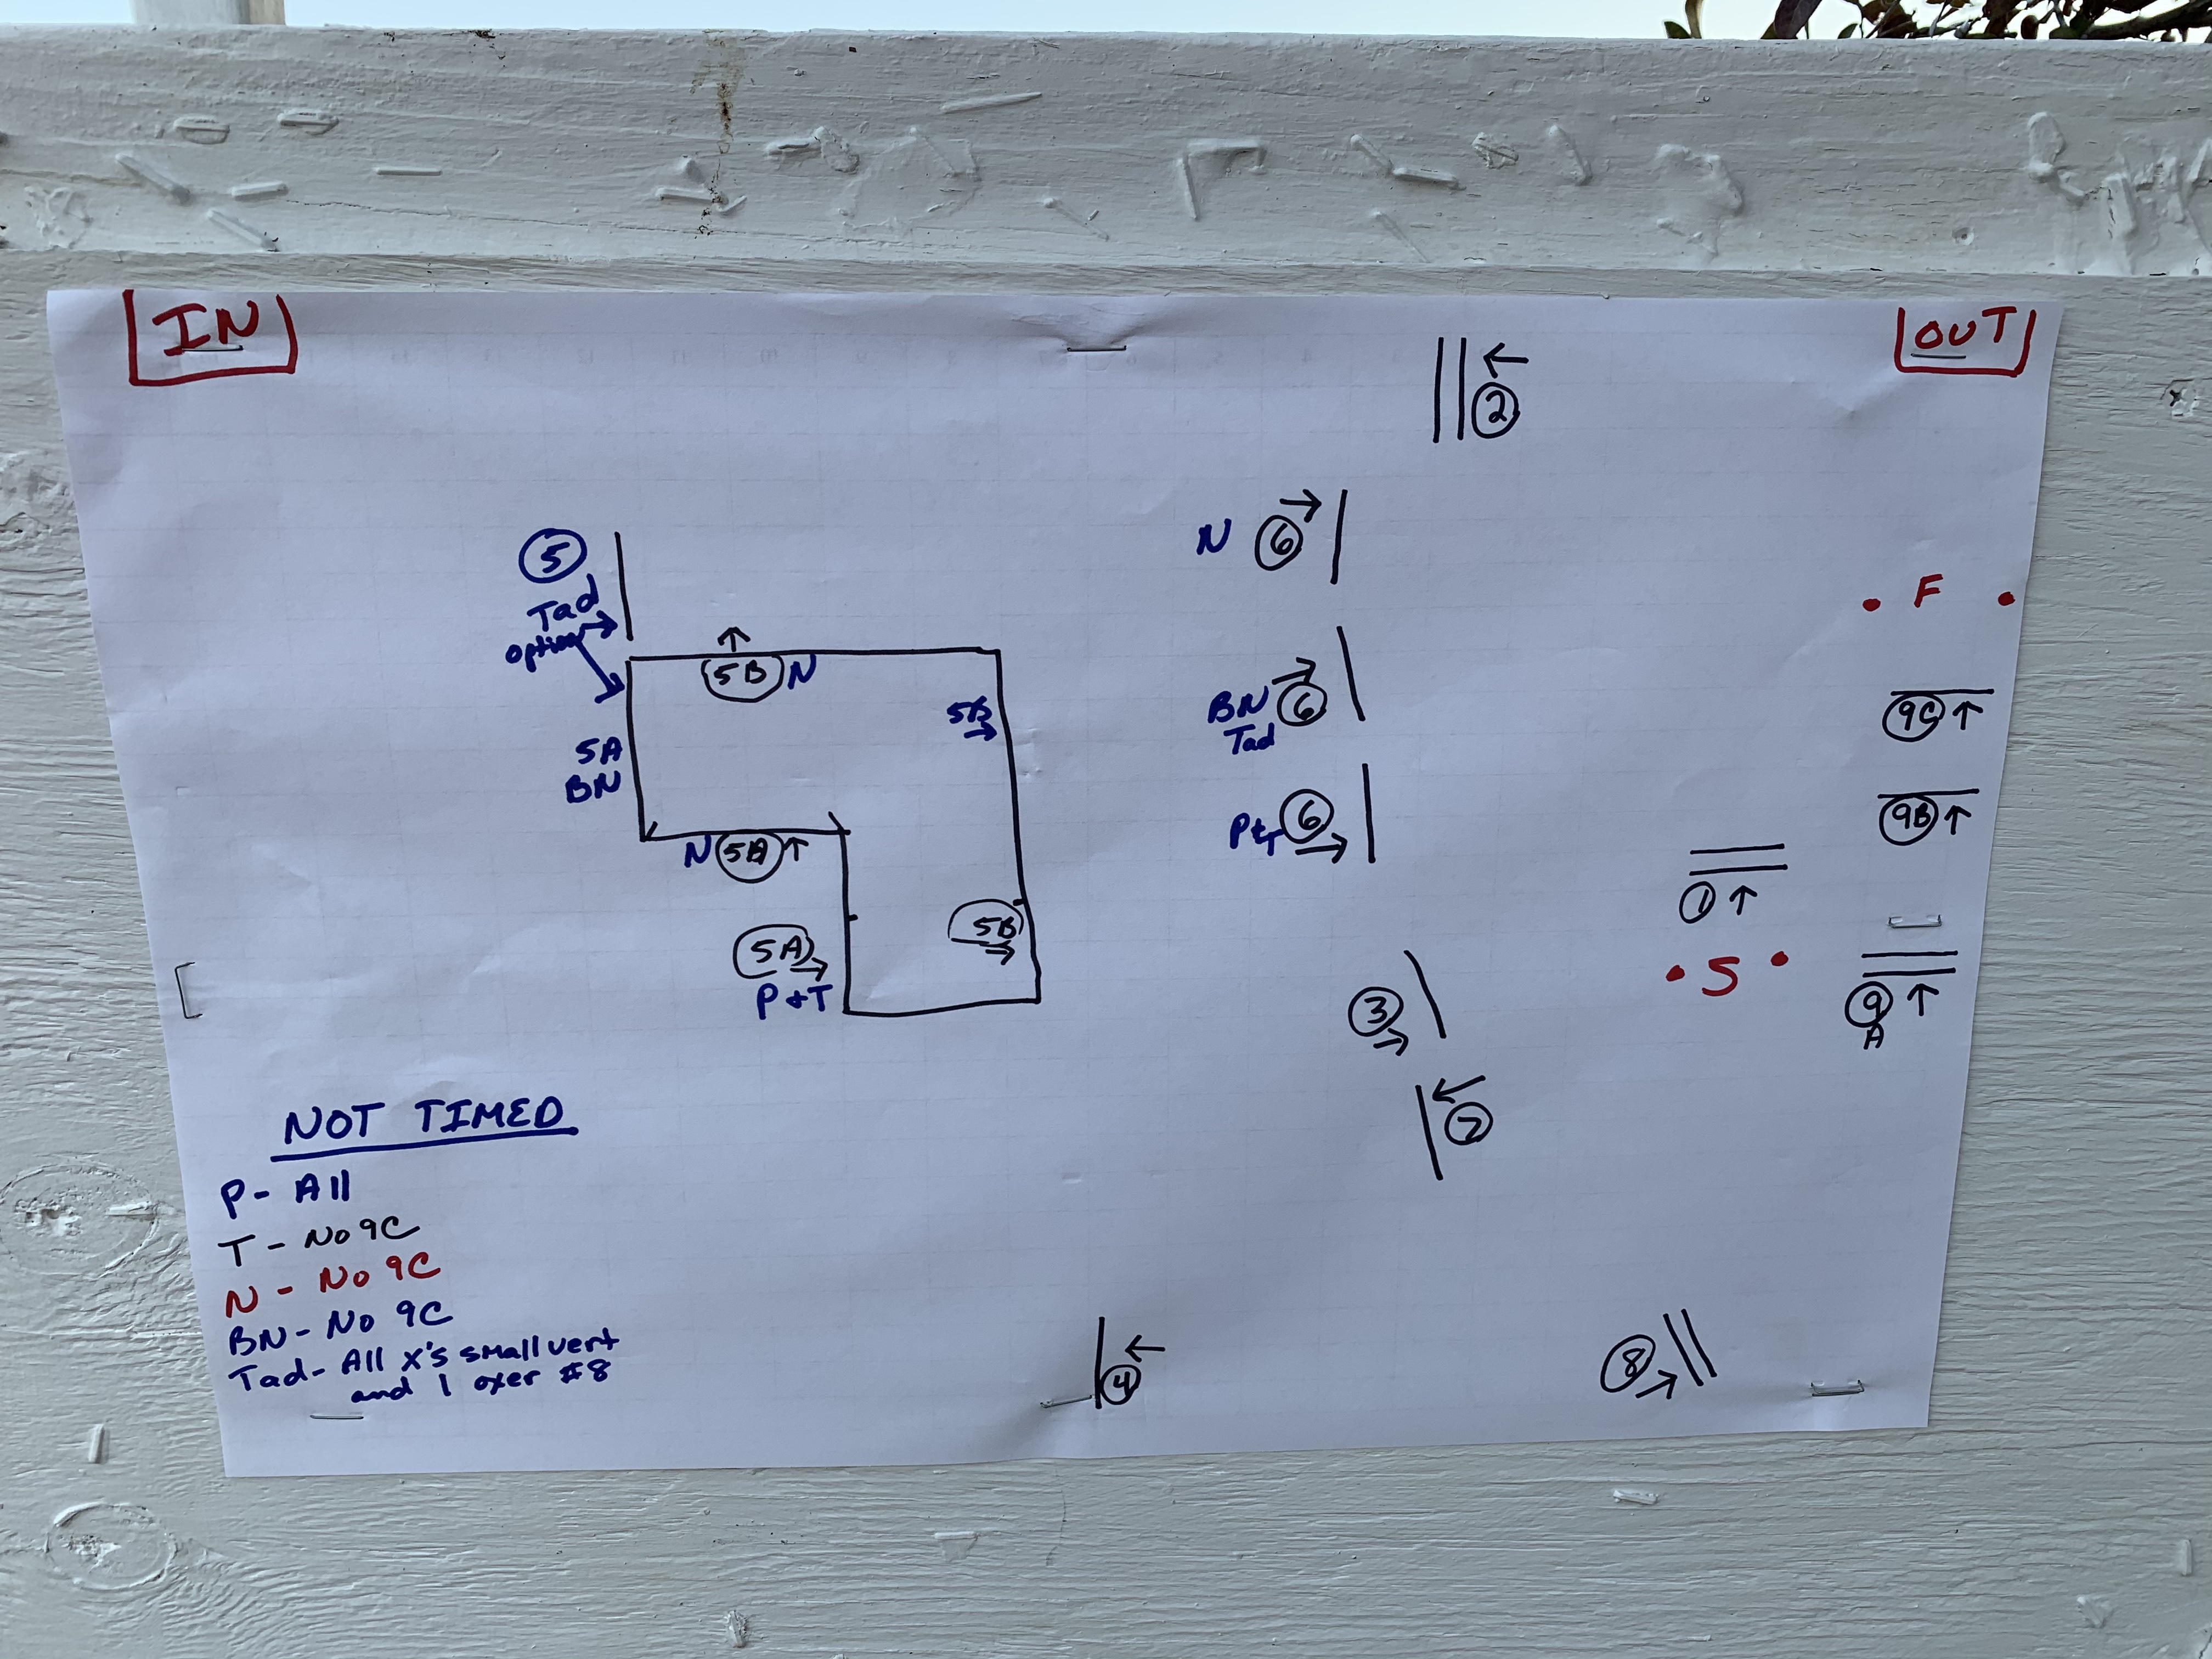 IN
OUT
← 2
N 6 →
5
Tad
option
• F •
↑
5B N
5B
→
BN 6 →
Tad
9C ↑
5A
BN
9B ↑
P+T 6 →
N 5A ↑
1 ↑
5B
→
5A
→
P+T
• S •
9 ↑
A
3
→
← 7
NOT TIMED
P - All
T - No 9C
N - No 9C
BN - No 9C
Tad - All X's small vert
and 1 oxer #8
← 4
8 →